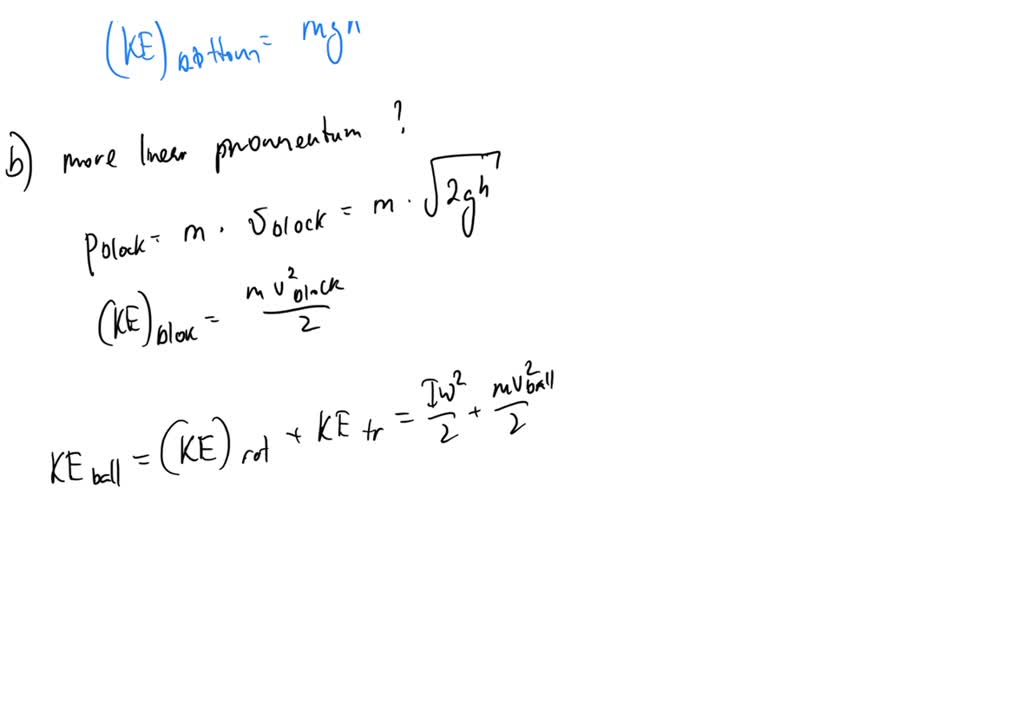 (KE)bottom = mgh
b) more linear momentum ?
Pblock = m · υblock = m · √2gh
(KE)blok = mv²block / 2
KEball = (KE)rot + KEtr = Iω²/2 + mv²ball/2